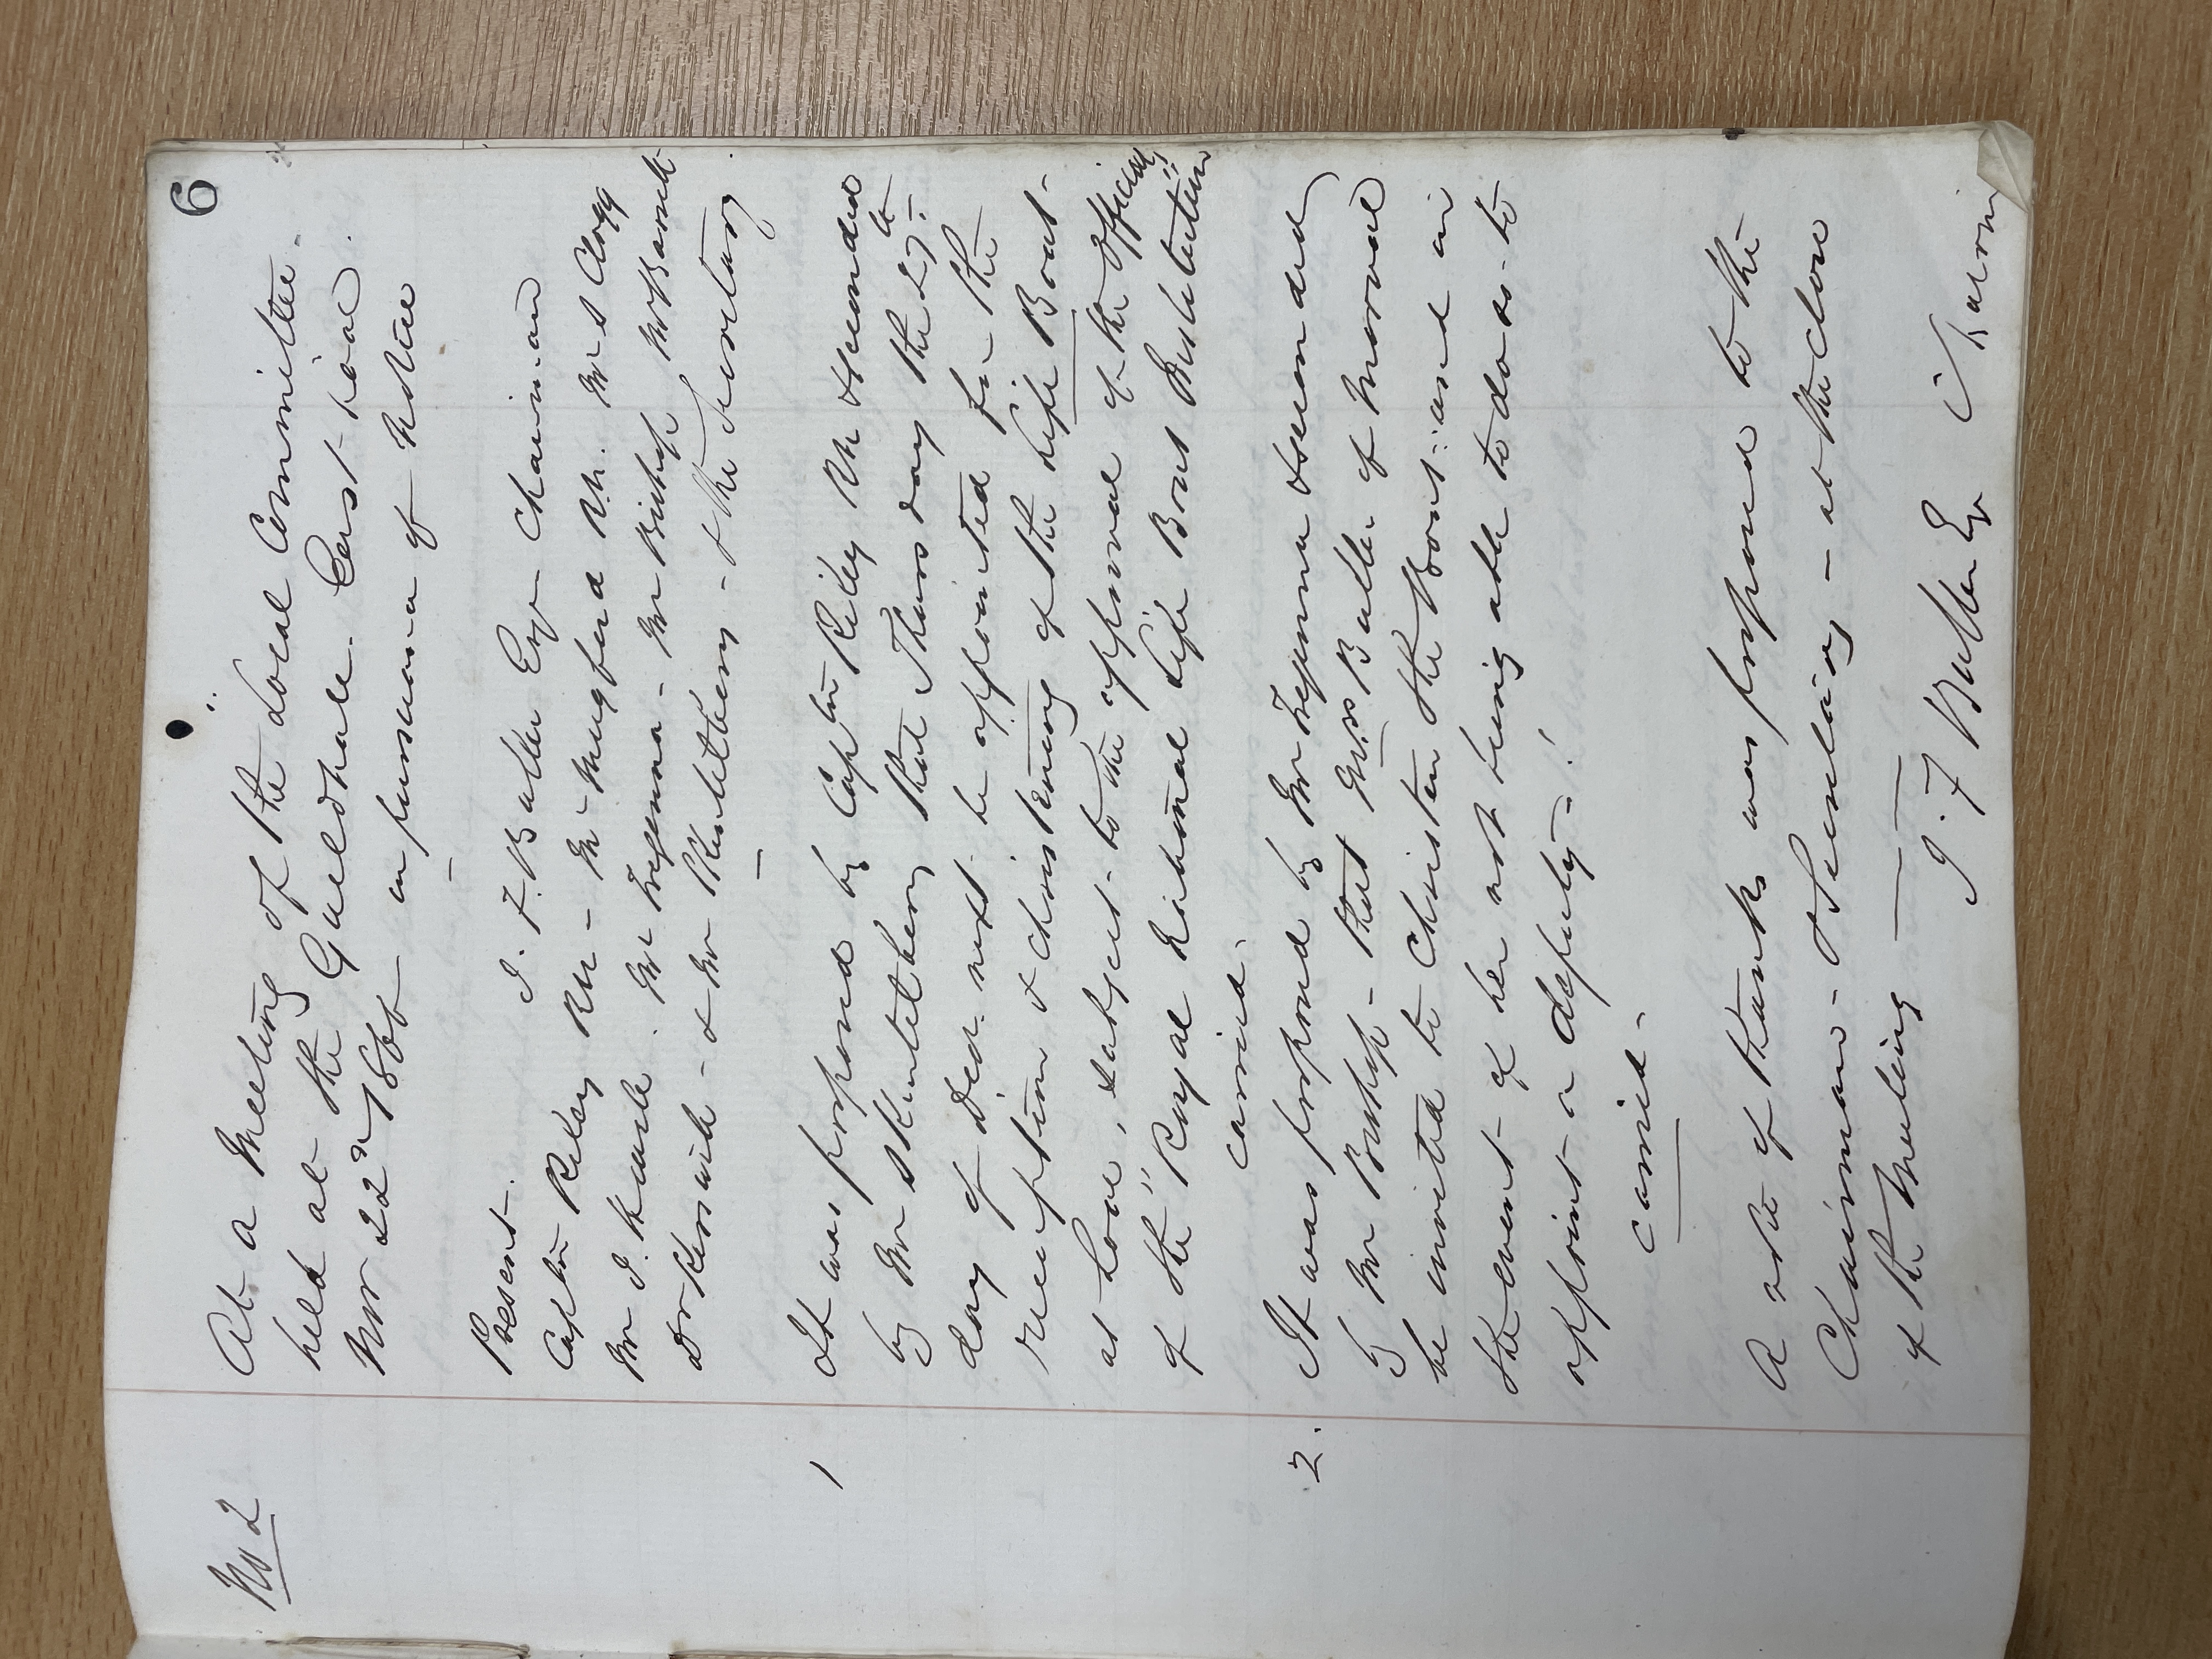 6
No 2
At a Meeting of the Local Committee
held at the Guildhall. East Looe.
Nov 22nd 1866 in pursuance of notice
Present. J. F. Buller Esqr Chairman
Captn Riley RN - Mr Mugford RN. Mr S Clogg
Mr J. Mr Tregenna - Mr Bishop
& Mr Shuttleberg - & the Secretary
1 It was proposed by Captn Riley RN seconded
by Mr that Thursday the 27th
day of Decr next be appointed for the
reception & christening of the Life Boat -
at Looe, subject to the approval of the officials
of the "Royal National Life Boat Institution"
carried.
2. It was proposed by Mr Tregenna seconded
by Mr Bishop - that Mrs Buller of Morval
be invited to Christen the Boat: and in
the event of her not being able to do so - to
appoint a deputy -!
carried -
A vote of thanks was proposed to the
Chairman - & Secretary - at the close
of the Meeting
J. F. Buller Esqr Chairm